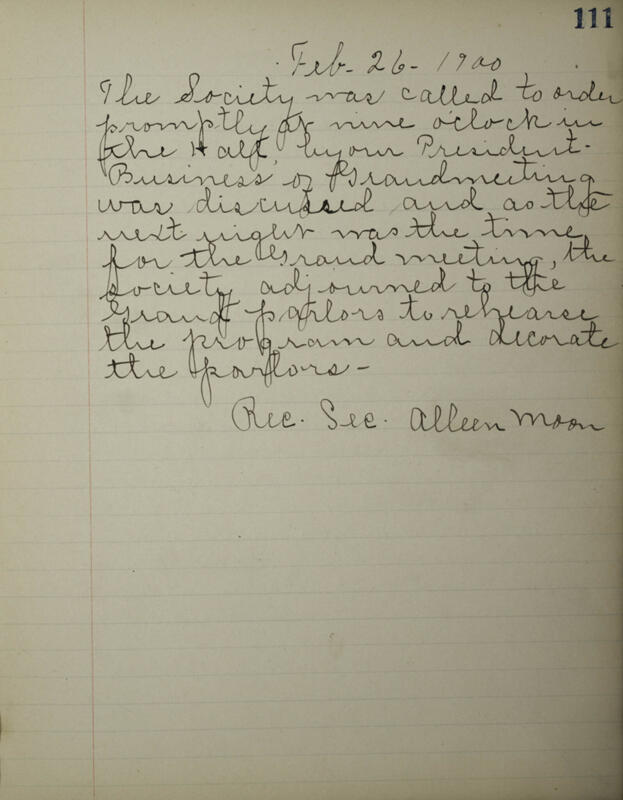 111
Feb- 26- 1900
The Society was called to order
promptly at nine o'clock in
the Hall, by our President-
Business of Grandmeeting
was discussed and as the
next night was the time
for the Grand meeting, the
society adjourned to the
Grand parlors to rehearse
the program and decorate
the parlors-
Rec. Sec. Alleen Moon